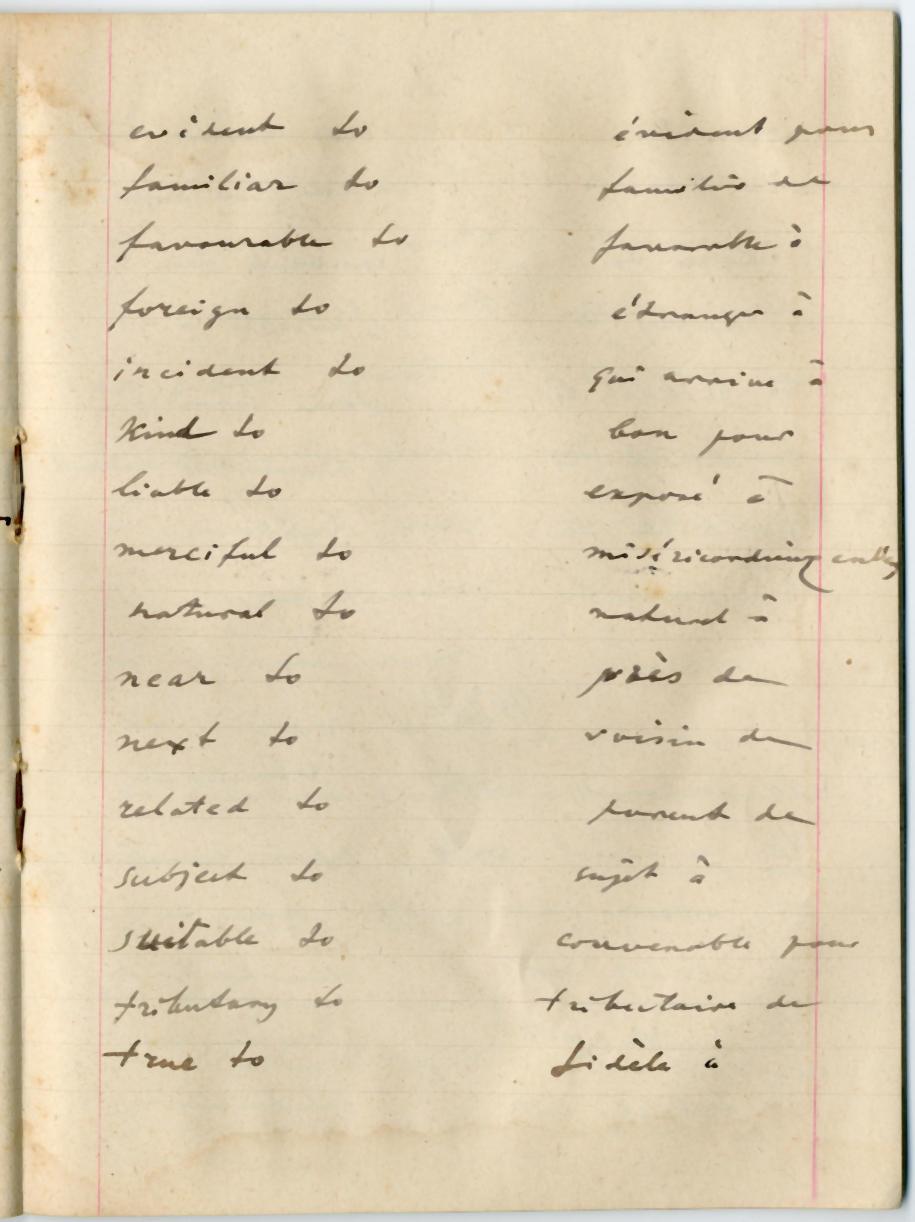 evident to évident pour
familiar to familier de
favourable to favorable à
foreign to étranger à
incident to qui arrive à
Kind to bon pour
liable to exposé à
merciful to miséricordieux
natural to naturel à
near to près de
next to voisin de
related to parent de
subject to sujet à
suitable to convenable pour
tributary to tributaire de
true to fidèle à